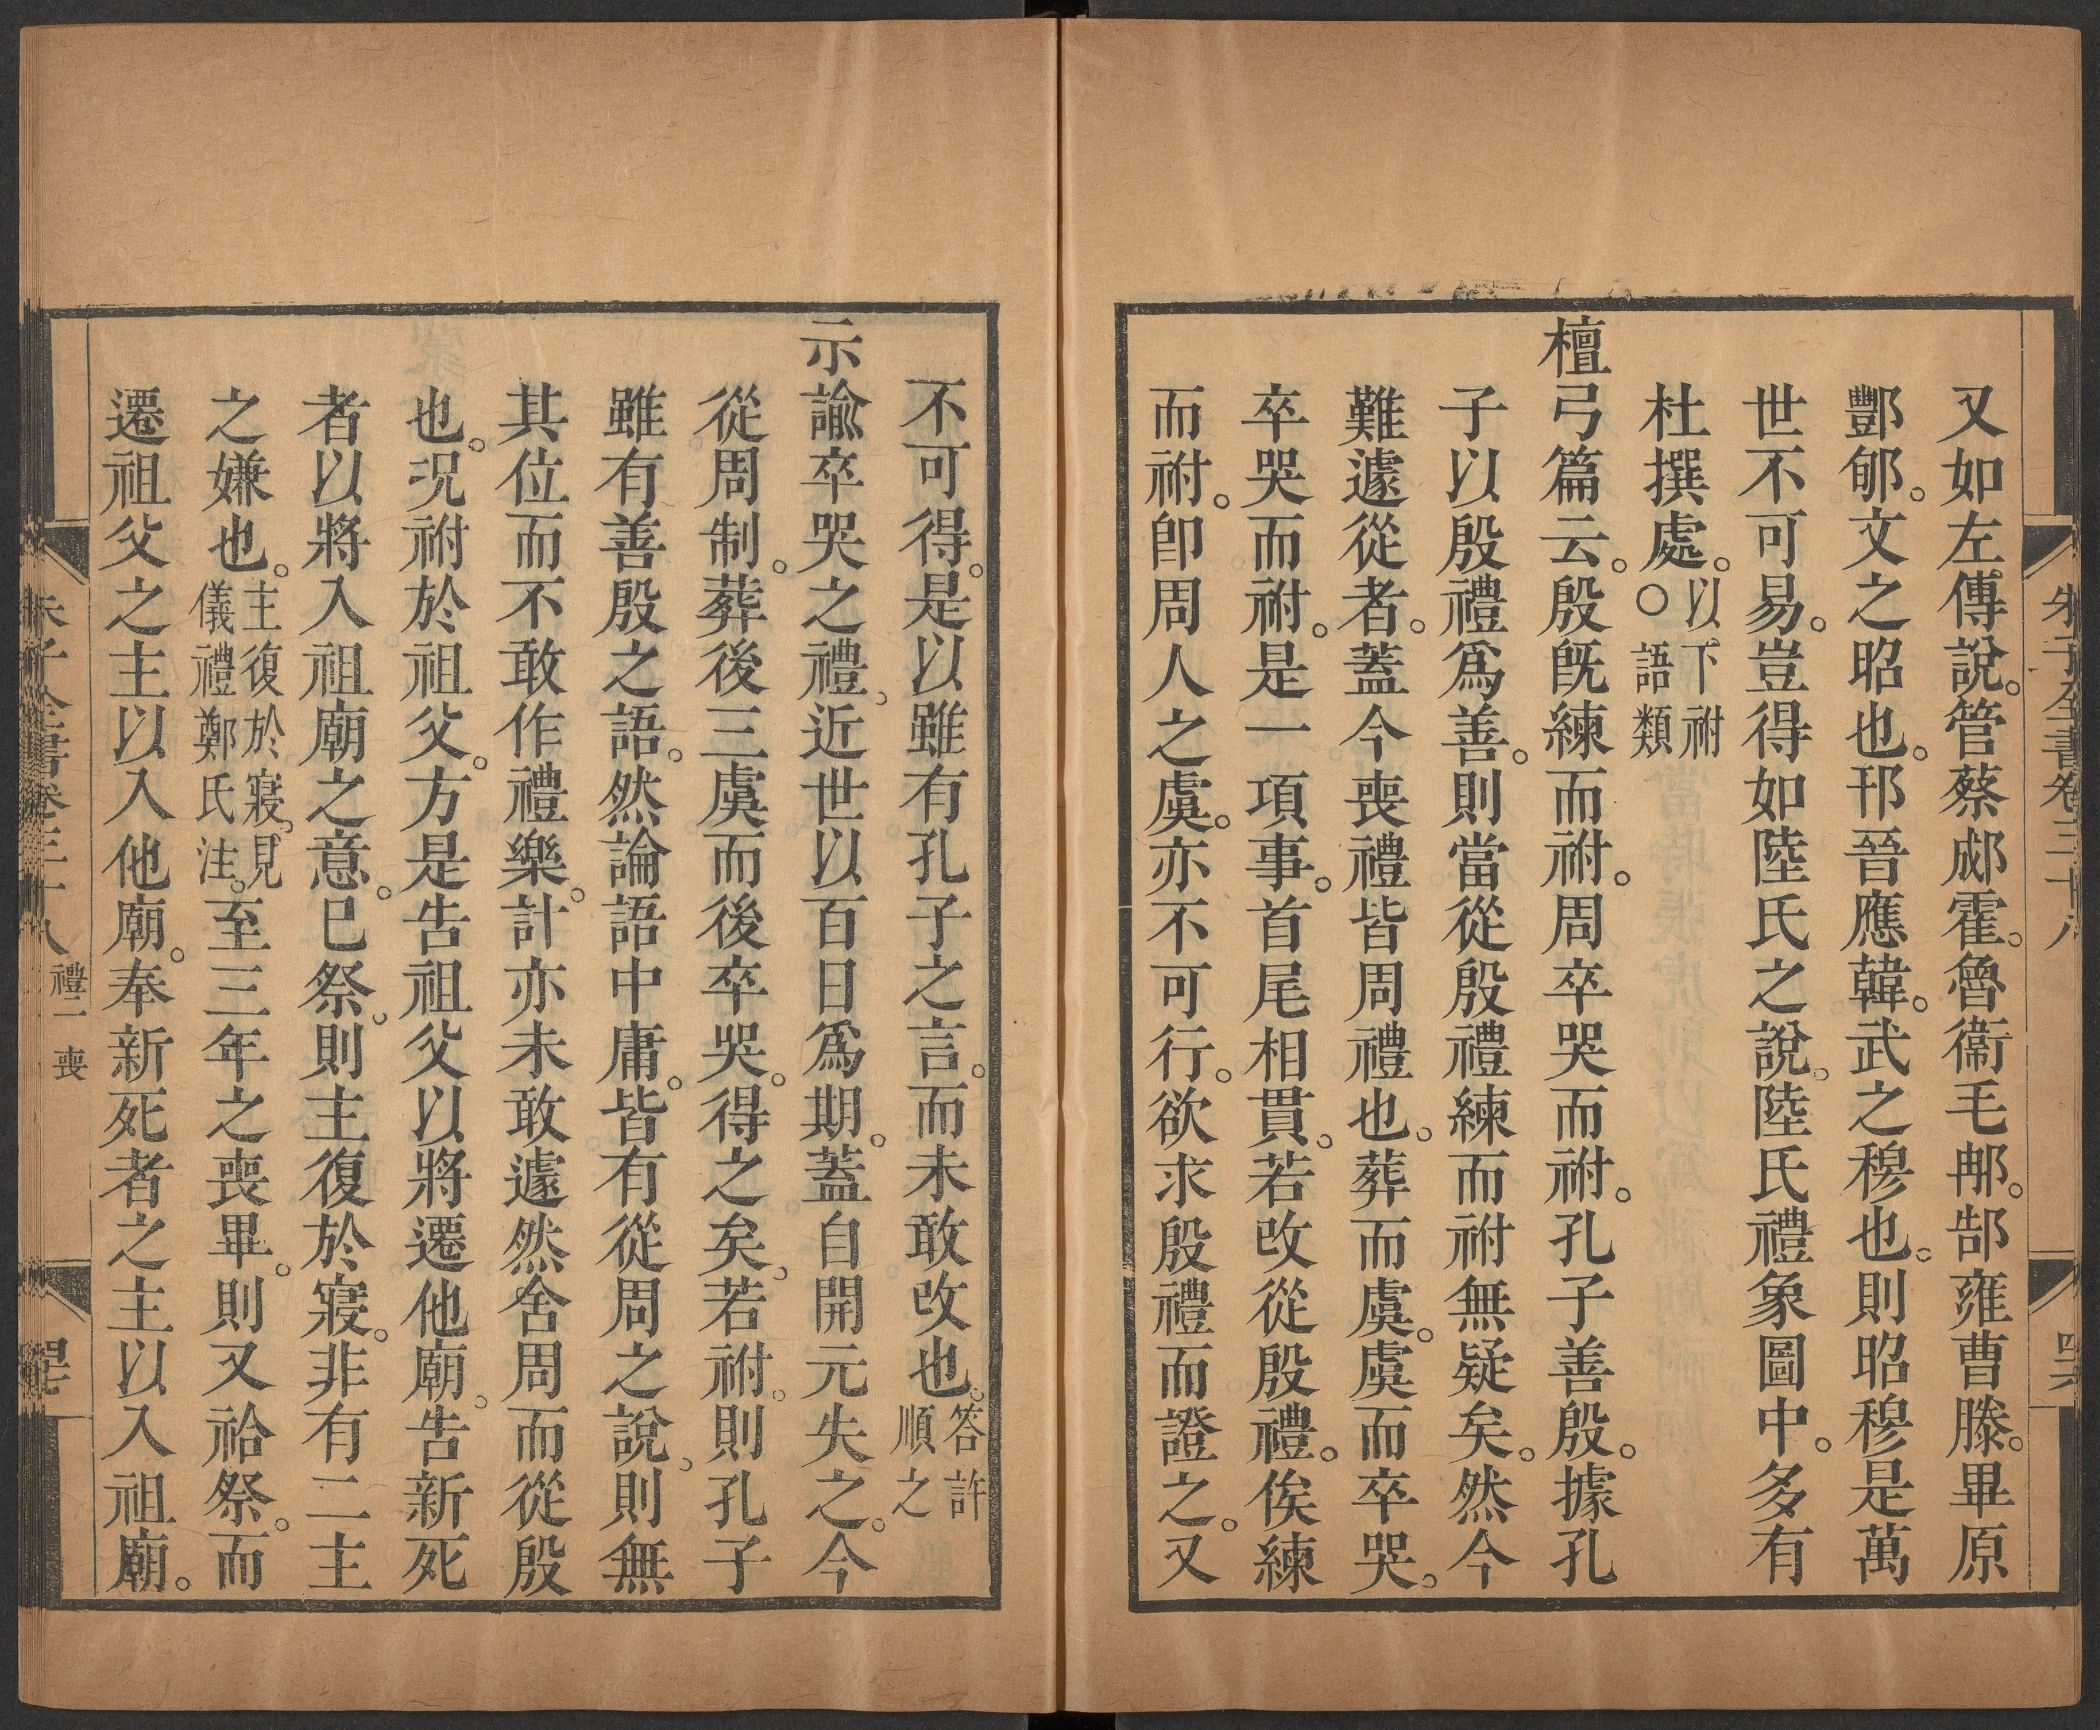 朱子全書卷三十八
又如左傳說。管蔡郕霍。魯衞毛𨛬。郜雍曹滕。畢原
酆郇。文之昭也。邘晉應韓。武之穆也。則昭穆是萬
世不可易。豈得如陸氏之說。陸氏禮象圖中。多有
杜撰處。○以下祔語類
檀弓篇云。殷旣練而祔。周卒哭而祔。孔子善殷。據孔
子以殷禮爲善。則當從殷禮練而祔無疑矣。然今
難遽從者。蓋今喪禮皆周禮也。葬而虞。虞而卒哭。
卒哭而祔。是一項事。首尾相貫。若改從殷禮。俟練
而祔。卽周人之虞。亦不可行。欲求殷禮而證之。又
不可得。是以雖有孔子之言。而未敢改也。答許順之
示諭卒哭之禮。近世以百日爲期。蓋自開元失之。今
從周制。葬後三虞而後卒哭。得之矣。若祔。則孔子
雖有善殷之語。然論語中庸。皆有從周之說。則無
其位而不敢作禮樂。計亦未敢遽然舍周而從殷
也。況祔於祖父。方是告祖父以將遷他廟。告新死
者以將入祖廟之意。已祭。則主復於寢。非有二主
之嫌也。主復於寢。見儀禮鄭氏注。至三年之喪畢。則又祫祭。而
遷祖父之主以入他廟。奉新死者之主以入祖廟。
朱子全書卷三十八 禮二 喪